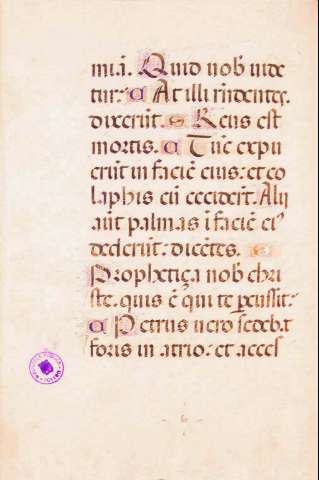 miā. Quid nob̄ uide
tur: a At illi r̄ndentes.
dixerūt. e Reus est
mortis. a Tūc expu
erūt in faciē eius: et co
laphis eū ceciderūt. Alij
aūt palmas ī faciē eiꝰ
dederūt: dicētes. e
Prophetiça nob̄ chri
ste. quis ē qui te p̄cussit:
a Petrus uero sedebat
foris in atrio: et acces